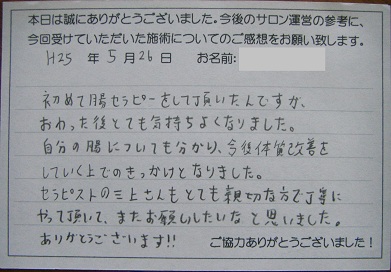 本日は誠にありがとうございました。今後のサロン運営の参考に、
今回受けていただいた施術についてのご感想をお願い致します。
H25 年 5 月 26 日 お名前:
初めて腸セラピーをして頂いたんですが、
おわった後とても気持ちよくなりました。
自分の腸についても分かり、今後体質改善を
していく上でのきっかけとなりました。
セラピストの三上さんもとても親切な方で丁寧に
やって頂いて、またお願いしたいなと思いました。
ありがとうございます!!
ご協力ありがとうございました!